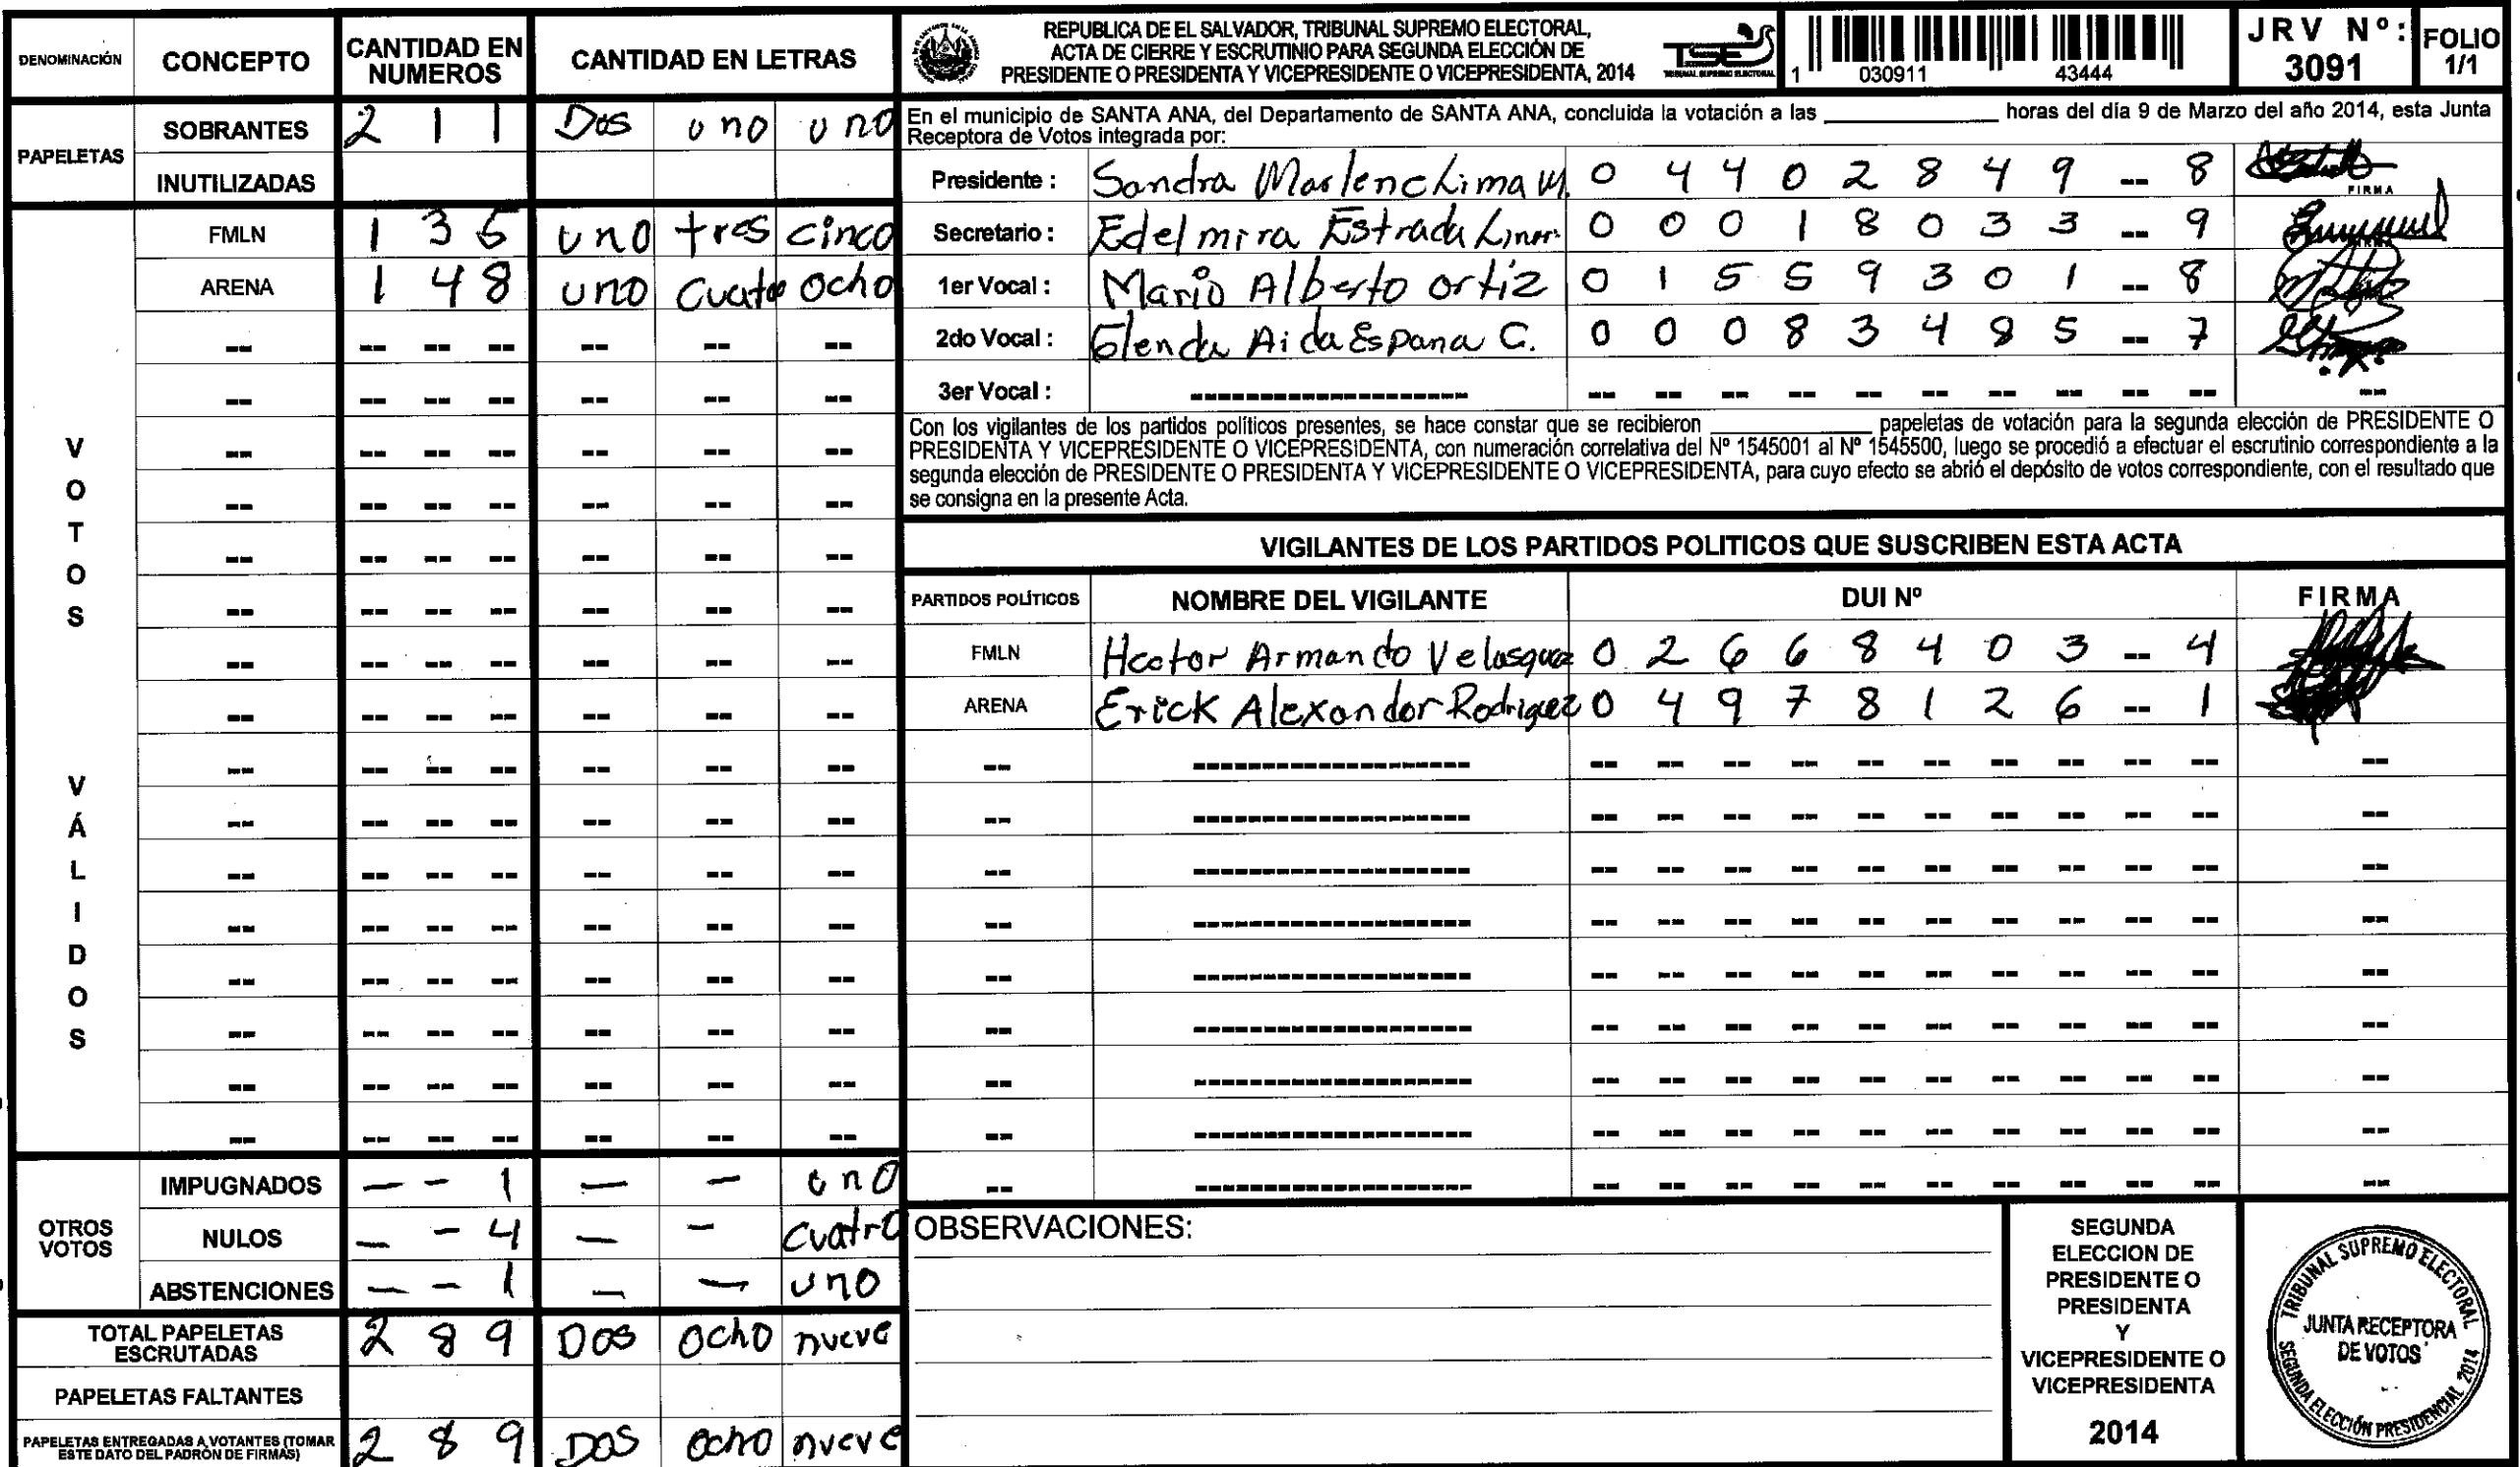 DENOMINACIÓN CONCEPTO CANTIDAD EN NUMEROS CANTIDAD EN LETRAS
PAPELETAS
SOBRANTES 2 1 1 Dos uno uno
INUTILIZADAS
VOTOS VÁLIDOS
FMLN 1 3 5 uno tres cinco
ARENA 1 4 8 uno cuatro ocho
OTROS VOTOS
IMPUGNADOS — — 1 — — uno
NULOS — — 4 — — cuatro
ABSTENCIONES — — 1 — — uno
TOTAL PAPELETAS ESCRUTADAS 2 8 9 Dos ocho nueve
PAPELETAS FALTANTES
PAPELETAS ENTREGADAS A VOTANTES (TOMAR ESTE DATO DEL PADRÓN DE FIRMAS) 2 8 9 Dos ocho nueve
REPUBLICA DE EL SALVADOR, TRIBUNAL SUPREMO ELECTORAL,
ACTA DE CIERRE Y ESCRUTINIO PARA SEGUNDA ELECCIÓN DE
PRESIDENTE O PRESIDENTA Y VICEPRESIDENTE O VICEPRESIDENTA, 2014
TSE
TRIBUNAL SUPREMO ELECTORAL
1 030911 43444
JRV Nº: 3091
FOLIO 1/1
En el municipio de SANTA ANA, del Departamento de SANTA ANA, concluida la votación a las ____________ horas del día 9 de Marzo del año 2014, esta Junta
Receptora de Votos integrada por:
Presidente : Sandra Marlene Lima M. 0 4 4 0 2 8 4 9 -- 8
FIRMA
Secretario : Edelmira Estrada 0 0 0 1 8 0 3 3 -- 9
1er Vocal : Mario Alberto Ortiz 0 1 5 5 9 3 0 1 -- 8
2do Vocal : Glenda Aida Espana C. 0 0 0 8 3 4 8 5 -- 7
3er Vocal : -------------------- -- -- -- -- -- -- -- -- -- -- --
Con los vigilantes de los partidos políticos presentes, se hace constar que se recibieron ____________ papeletas de votación para la segunda elección de PRESIDENTE O
PRESIDENTA Y VICEPRESIDENTE O VICEPRESIDENTA, con numeración correlativa del Nº 1545001 al Nº 1545500, luego se procedió a efectuar el escrutinio correspondiente a la
segunda elección de PRESIDENTE O PRESIDENTA Y VICEPRESIDENTE O VICEPRESIDENTA, para cuyo efecto se abrió el depósito de votos correspondiente, con el resultado que
se consigna en la presente Acta.
VIGILANTES DE LOS PARTIDOS POLITICOS QUE SUSCRIBEN ESTA ACTA
PARTIDOS POLÍTICOS NOMBRE DEL VIGILANTE DUI Nº FIRMA
FMLN Hector Armando Velasquez 0 2 6 6 8 4 0 3 -- 4
ARENA Erick Alexander Rodriguez 0 4 9 7 8 1 2 6 -- 1
OBSERVACIONES:
SEGUNDA
ELECCION DE
PRESIDENTE O
PRESIDENTA
Y
VICEPRESIDENTE O
VICEPRESIDENTA
2014
TRIBUNAL SUPREMO ELECTORAL
JUNTA RECEPTORA
DE VOTOS
SEGUNDA ELECCIÓN PRESIDENCIAL 2014